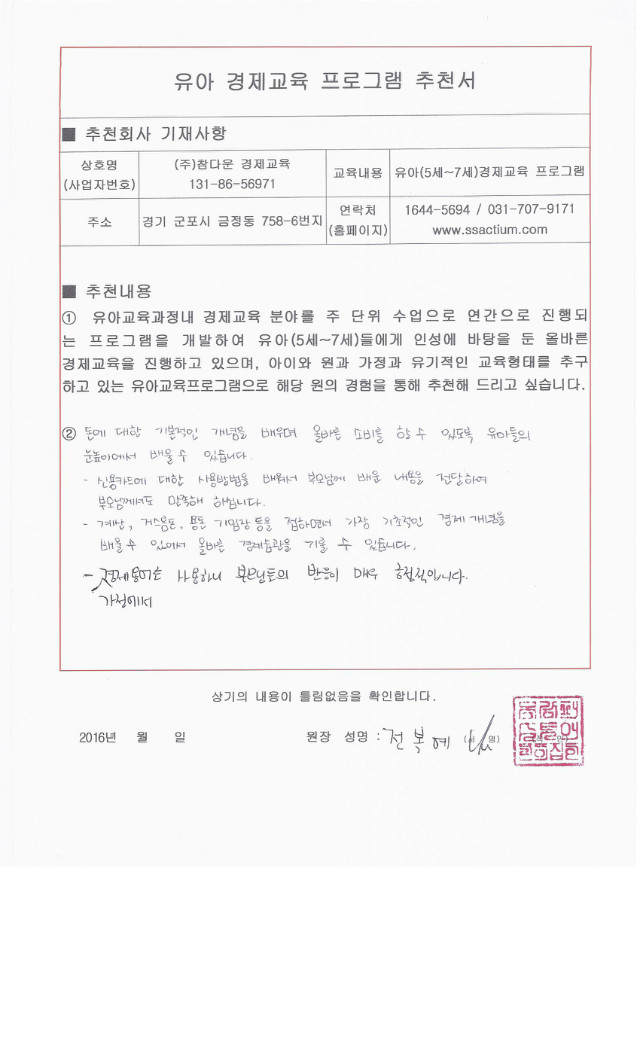 유아 경제교육 프로그램 추천서
■ 추천회사 기재사항
상호명
(사업자번호)
(주)참다운 경제교육
131-86-56971
교육내용
유아(5세~7세)경제교육 프로그램
주소
경기 군포시 금정동 758-6번지
연락처
(홈페이지)
1644-5694 / 031-707-9171
www.ssactium.com
■ 추천내용
① 유아교육과정내 경제교육 분야를 주 단위 수업으로 연간으로 진행되
는 프로그램을 개발하여 유아(5세~7세)들에게 인성에 바탕을 둔 올바른
경제교육을 진행하고 있으며, 아이와 원과 가정과 유기적인 교육형태를 추구
하고 있는 유아교육프로그램으로 해당 원의 경험을 통해 추천해 드리고 싶습니다.
② 돈에 대한 기본적인 개념을 배우며 올바른 소비를 할 수 있도록 유아들의
눈높이에서 배울 수 있습니다.
- 신용카드에 대한 사용방법을 배워서 부모님께 배운 내용을 전달하여
부모님께서도 만족해 하십니다.
- 계산, 거스름돈, 용돈 기입장 등을 접하면서 가장 기초적인 경제 개념을
배울 수 있어서 올바른 경제습관을 기를 수 있습니다.
- 경제용어를 사용하니 부모님들의 반응이 매우 긍정적입니다.
가정에서
상기의 내용이 틀림없음을 확인합니다.
2016년 월 일
원장 성명 : 전복혜